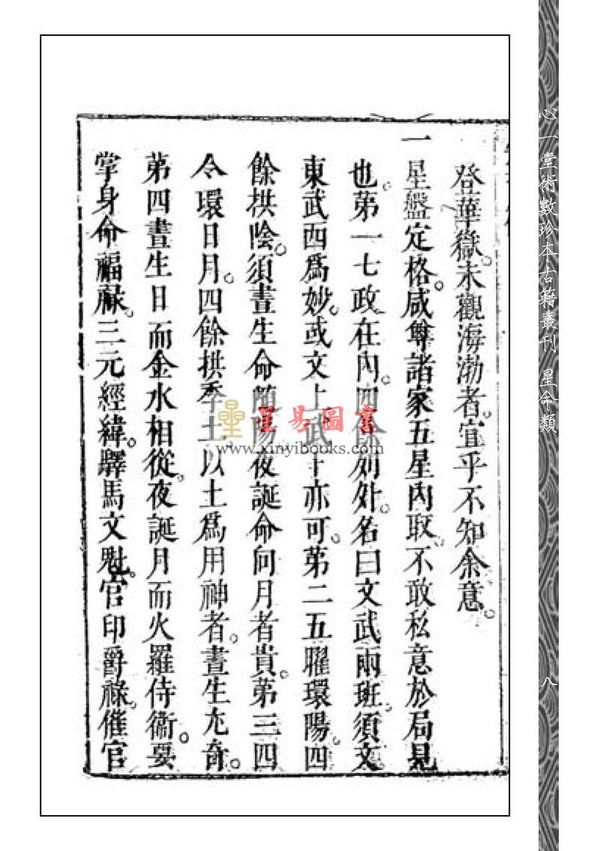 登華嶽。未觀海渤者。宜乎不知余意。
一星盤定格。咸尊諸家五星內取。不敢私意於局見
也。第一七政在內。四餘列外。名曰文武兩班。須文
東武西爲妙。或文上武下亦可。第二五曜環陽。四
餘拱陰。須晝生命隨陽。夜誕命向月者貴。第三四
令環日月。四餘拱季土。以土爲用神者。晝生尤奇。
第四晝生日而金水相從。夜誕月而火羅侍衞。要
掌身命福祿。三元經緯。驛馬文魁。官印爵祿。催官
星易圖書
www.xinyibooks.com
心一堂術數珍本古籍叢刊 星命類
八